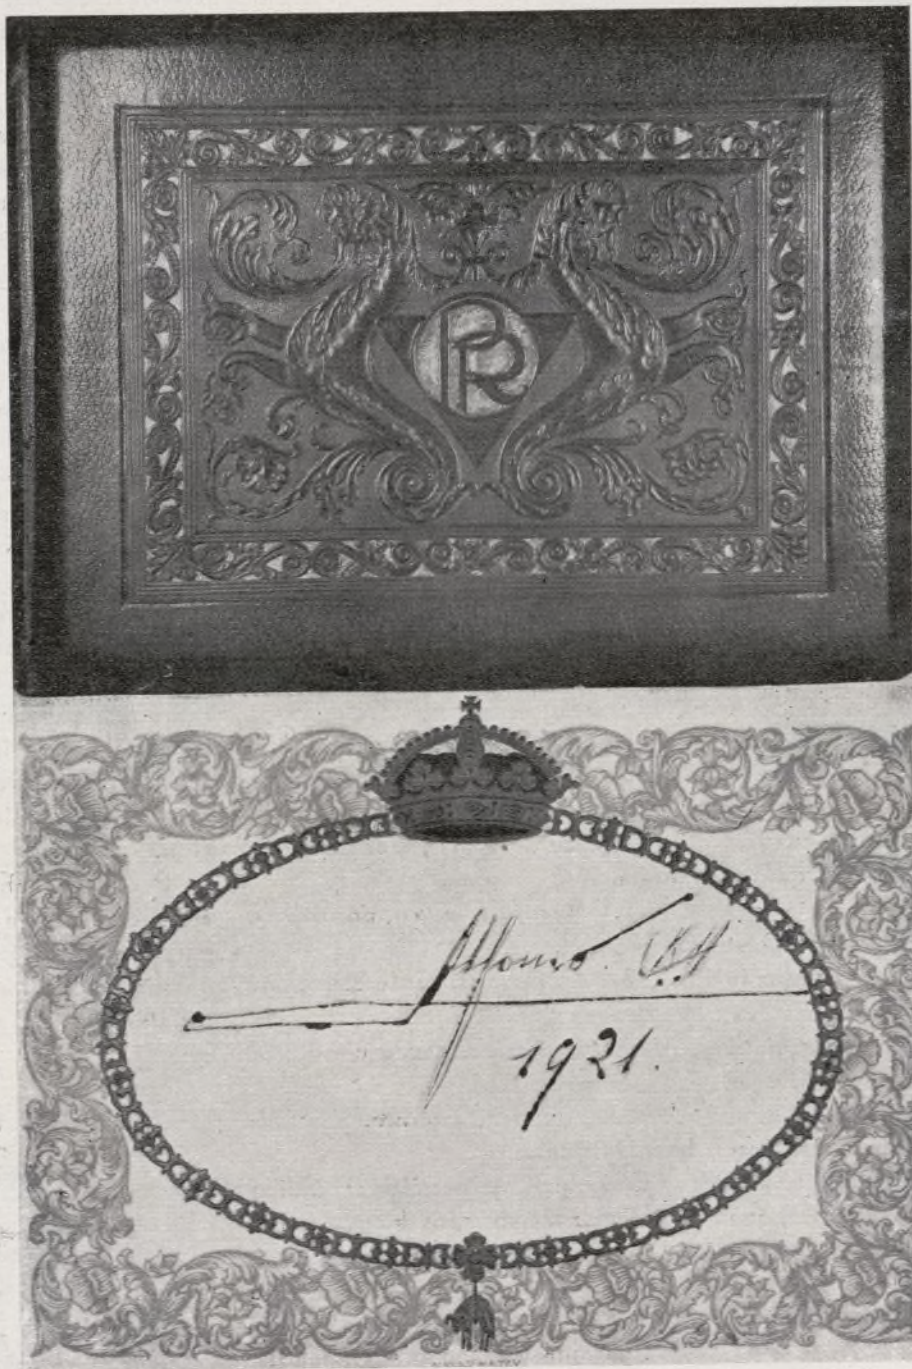 PR
Alfonso XIII
1921.